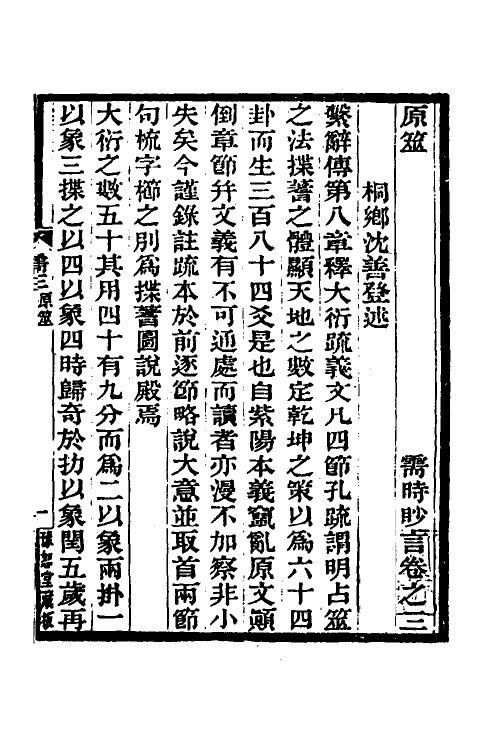 原筮 需時眇言卷之三
桐鄉沈善登述
繫辭傳第八章釋大衍疏義文凡四節孔疏謂明占筮
之法揲蓍之體顯天地之數定乾坤之策以爲六十四
卦而生三百八十四爻是也自紫陽本義竄亂原文顚
倒章節幷文義有不可通處而讀者亦漫不加察非小
失矣今謹錄註疏本於前逐節略說大意並取首兩節
句梳字櫛之別爲揲蓍圖說殿焉
大衍之數五十其用四十有九分而爲二以象兩掛一
以象三揲之以四以象四時歸奇於扐以象閏五歲再
需三 原筮 一 豫恕堂藏板